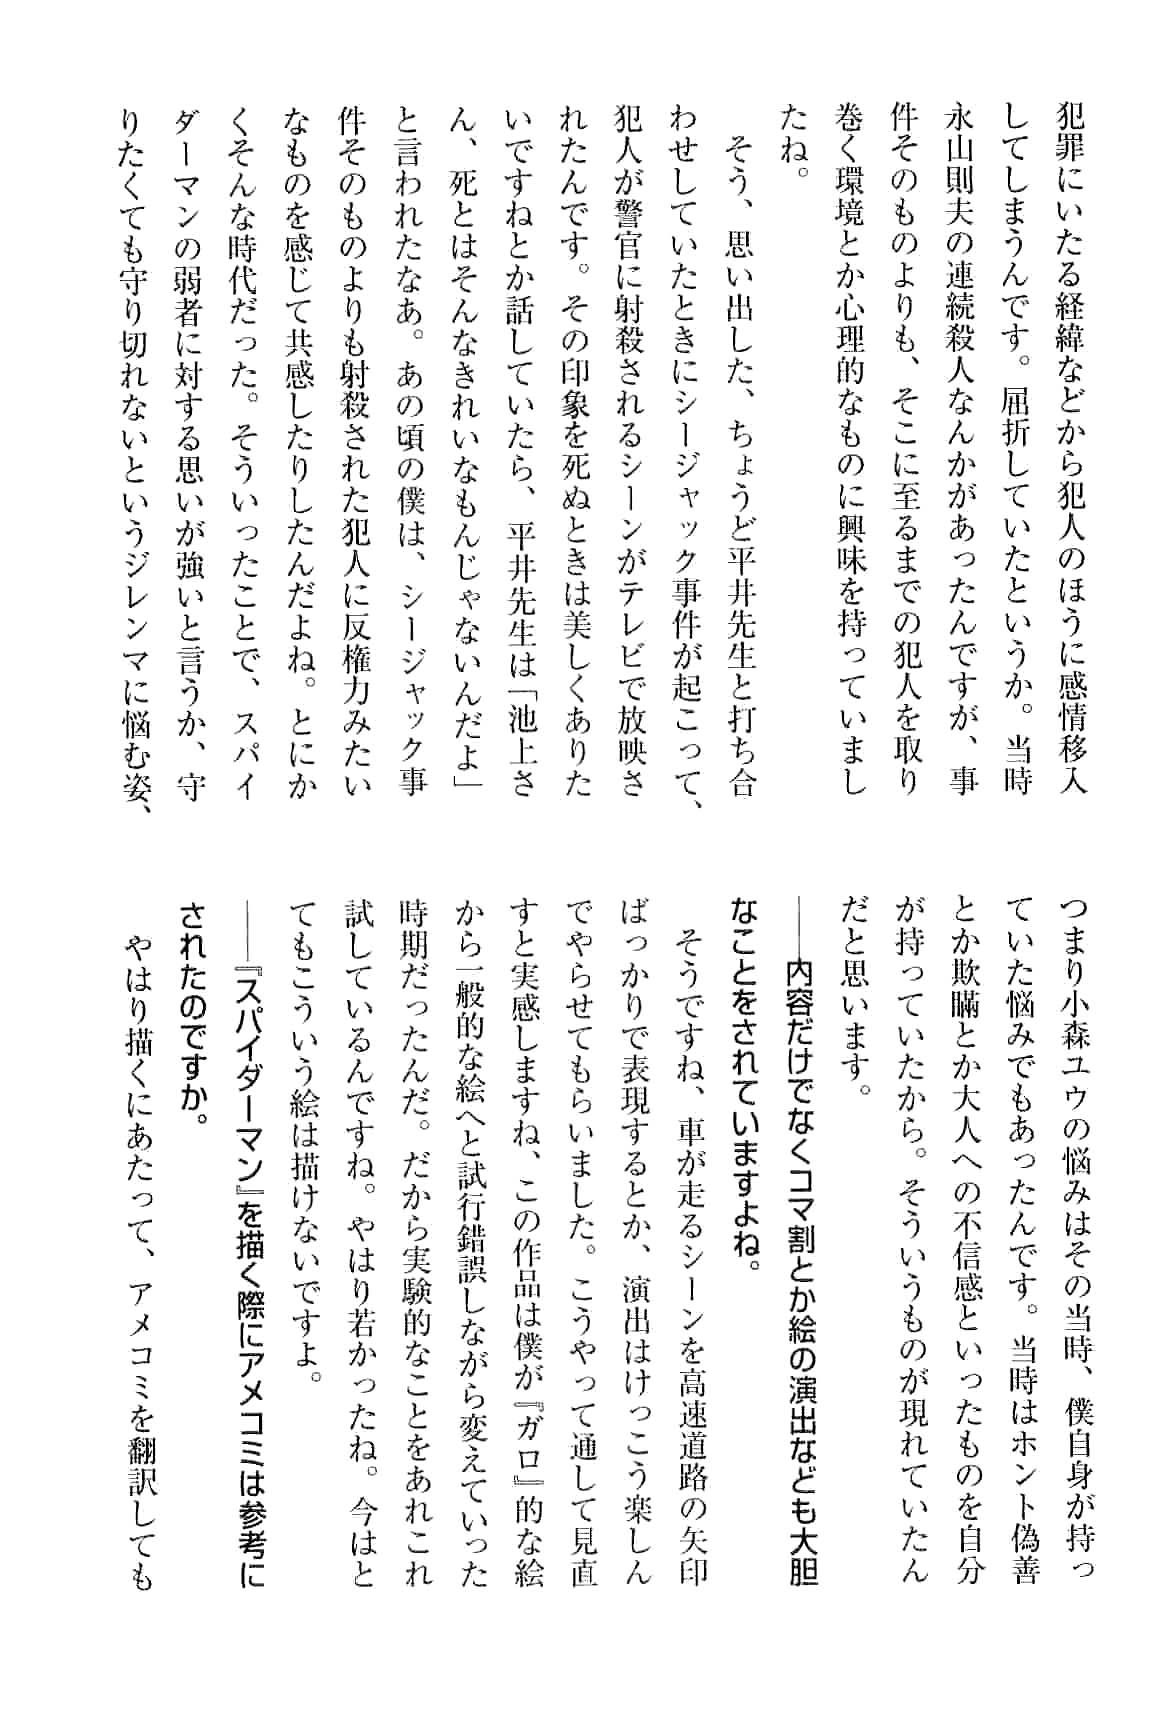 犯罪にいたる経緯などから犯人のほうに感情移入
してしまうんです。屈折していたというか。当時
永山則夫の連続殺人なんかがあったんですが、事
件そのものよりも、そこに至るまでの犯人を取り
巻く環境とか心理的なものに興味を持っていまし
たね。
そう、思い出した、ちょうど平井先生と打ち合
わせしていたときにシージャック事件が起こって、
犯人が警官に射殺されるシーンがテレビで放映さ
れたんです。その印象を死ぬときは美しくありた
いですねとか話していたら、平井先生は「池上さ
ん、死とはそんなきれいなもんじゃないんだよ」
と言われたなあ。あの頃の僕は、シージャック事
件そのものよりも射殺された犯人に反権力みたい
なものを感じて共感したりしたんだよね。とにか
くそんな時代だった。そういったことで、スパイ
ダーマンの弱者に対する思いが強いと言うか、守
りたくても守り切れないというジレンマに悩む姿、
つまり小森ユウの悩みはその当時、僕自身が持っ
ていた悩みでもあったんです。当時はホント偽善
とか欺瞞とか大人への不信感といったものを自分
が持っていたから。そういうものが現れていたん
だと思います。
──内容だけでなくコマ割とか絵の演出なども大胆
なことをされていますよね。
そうですね、車が走るシーンを高速道路の矢印
ばっかりで表現するとか、演出はけっこう楽しん
でやらせてもらいました。こうやって通して見直
すと実感しますね、この作品は僕が『ガロ』的な絵
から一般的な絵へと試行錯誤しながら変えていった
時期だったんだ。だから実験的なことをあれこれ
試しているんですね。やはり若かったね。今はと
てもこういう絵は描けないですよ。
──『スパイダーマン』を描く際にアメコミは参考に
されたのですか。
やはり描くにあたって、アメコミを翻訳しても